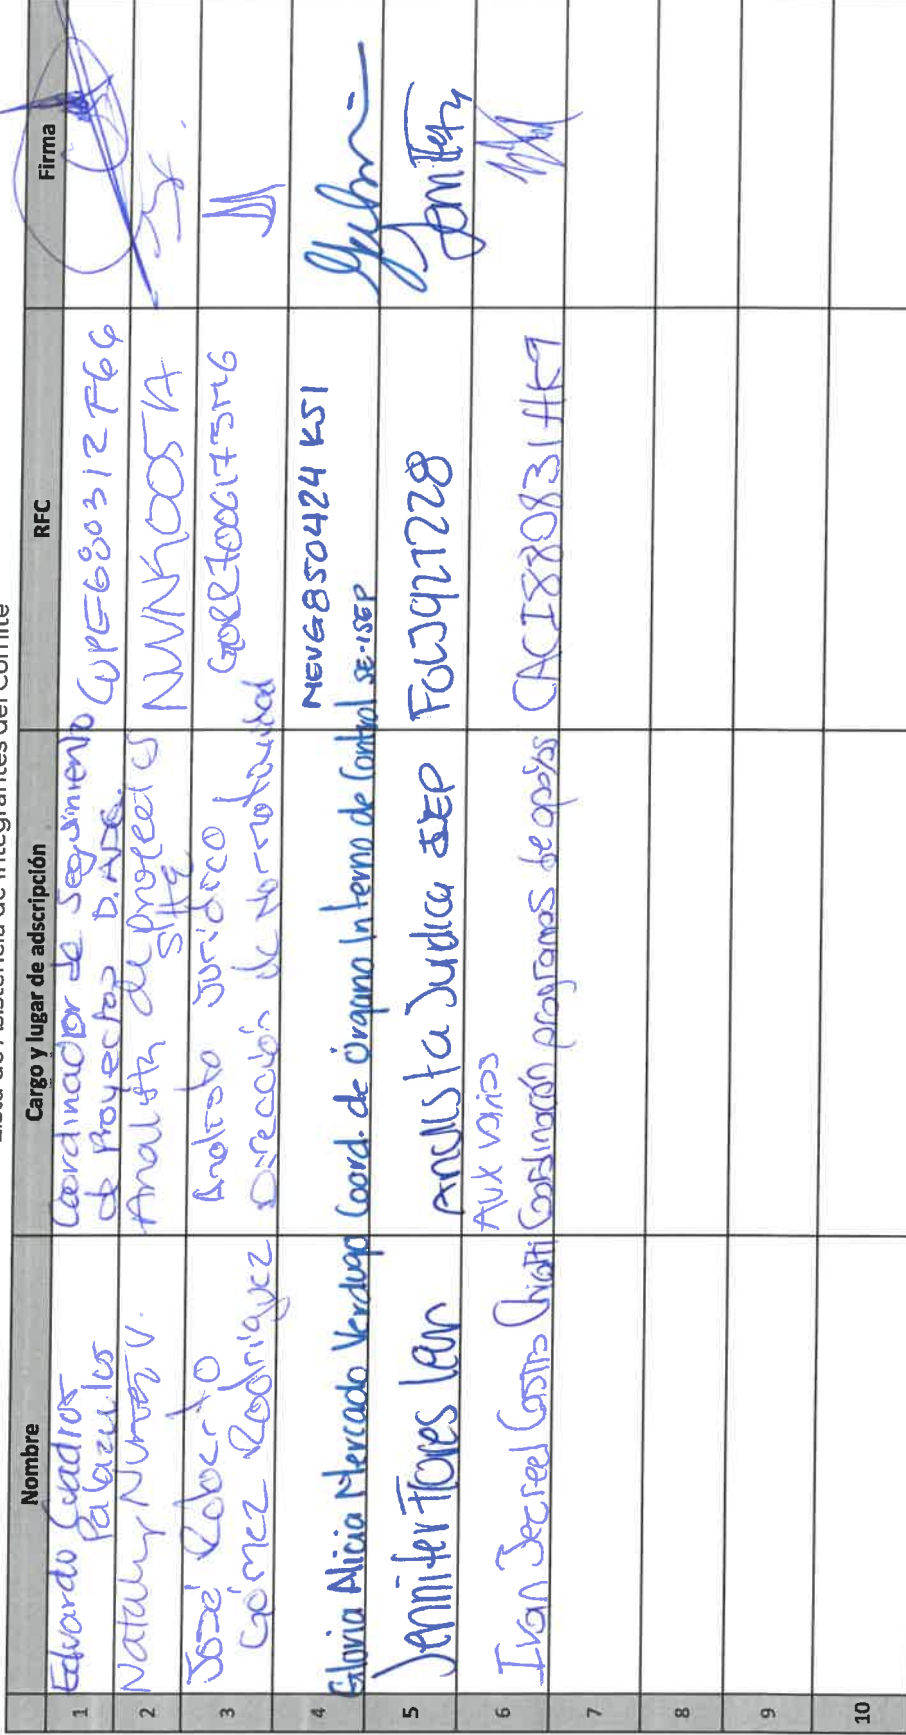 Lista de Asistencia de Integrantes del Comité
Nombre Cargo y lugar de adscripción RFC Firma
1 Eduardo Cuadros Palazuelos Coordinador de Seguimiento de Proyectos D.
2 Nataly Nuñez V. Analista de proyectos
3 José Roberto Gómez Rodríguez Analista Jurídico Dirección de Normatividad GORR700617
4 Gloria Alicia Mercado Verdugo Coord. de Órgano Interno de Control SE-ISEP MEVG850424 KS1
5 Jennifer Flores Leur Analista Judica ISEP FOLJ921228
6 Ivan Jezreel Castro Chiatti Aux varios Coordinación programas de apoyos CACI880831HK9
7
8
9
10